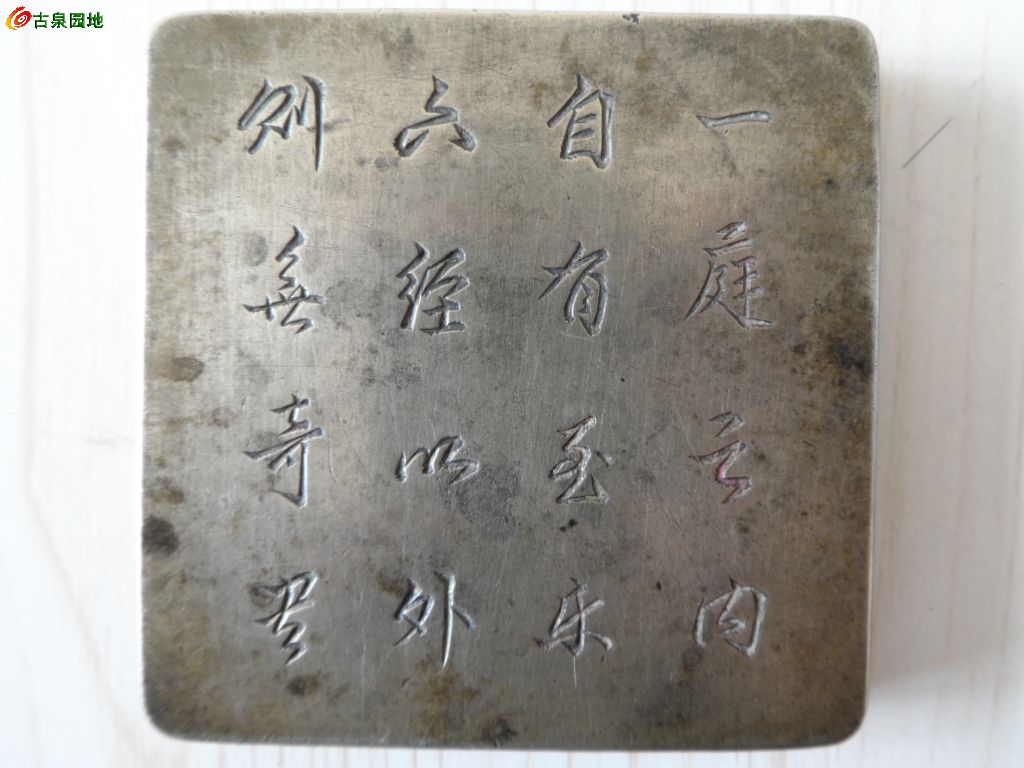 古泉园地
一庭之内
自有至乐
六经以外
别無奇書